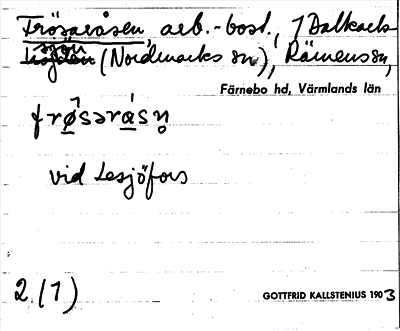 Frösaråsen, arb.-bost., 1 Dalkarls
sjön (Nordmarks sn), Rämens sn,
Färnebo hd, Värmlands län
frø̂sərásn̥
vid Lesjöfors
2 (1)
GOTTFRID KALLSTENIUS 1903